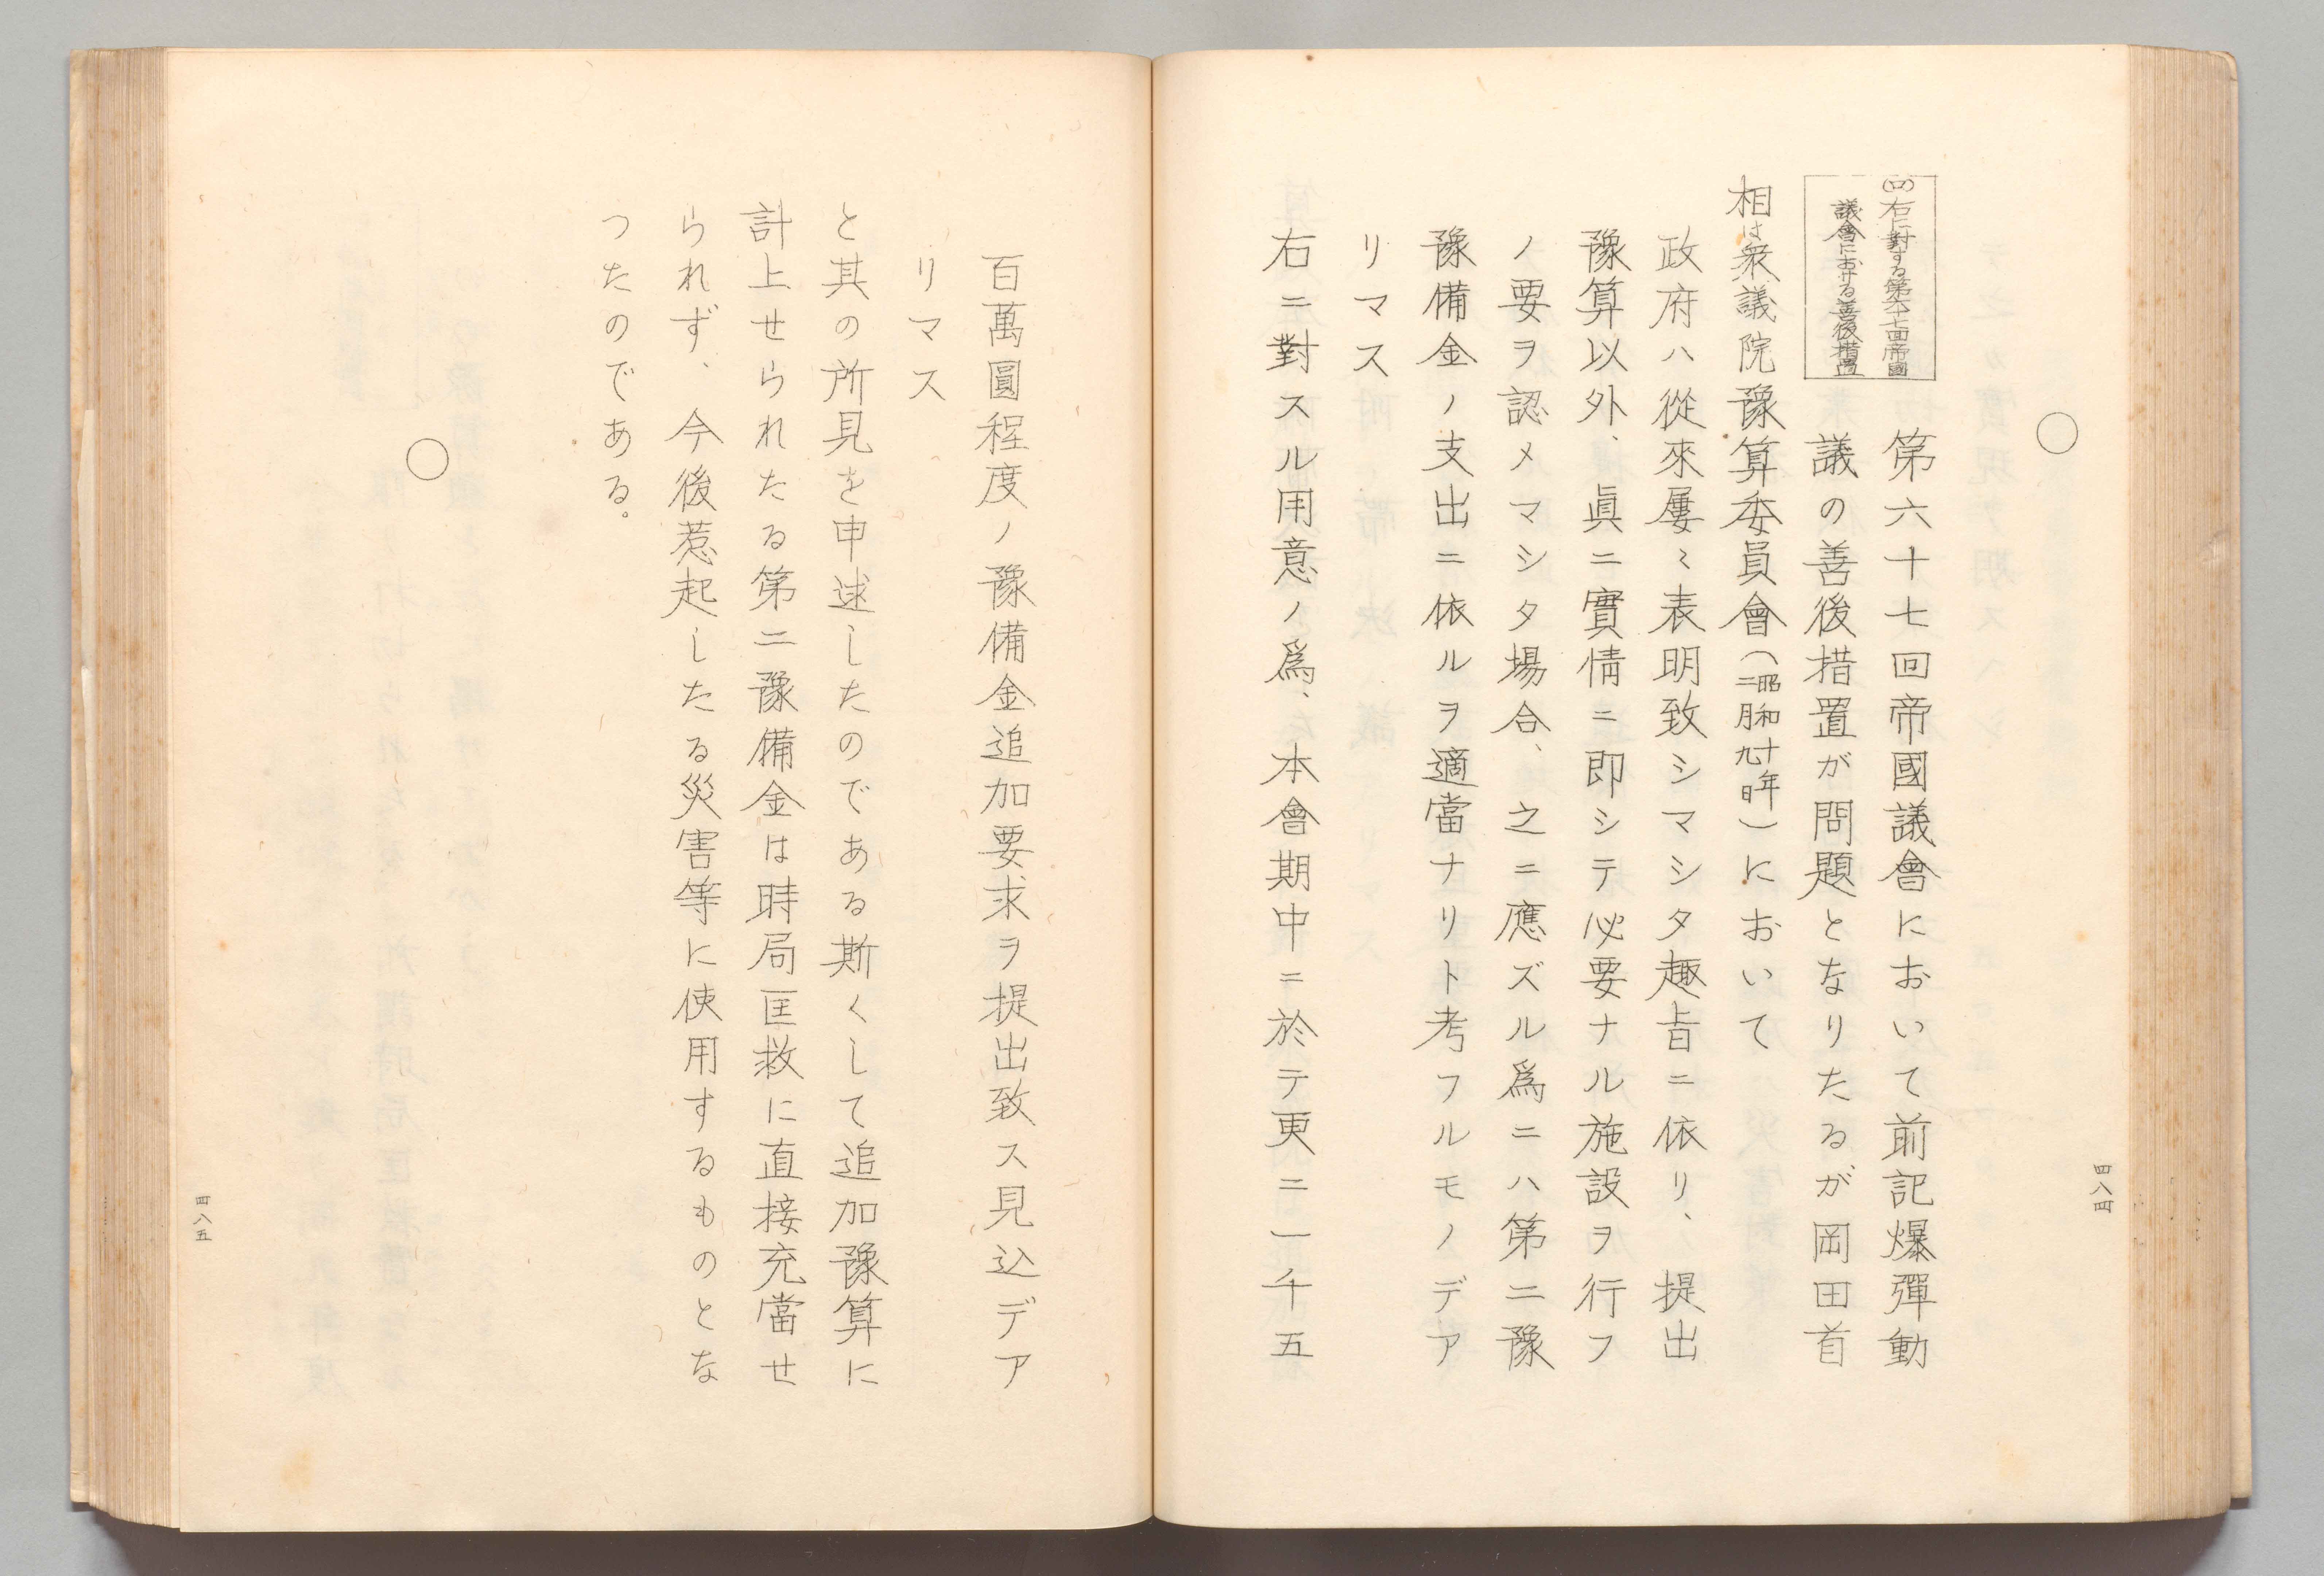 四八四
㈣右に對する第六十七回帝國
議會における善後措置
第六十七回帝國議會において前記爆彈動
議の善後措置が問題となりたるが岡田首
相は衆議院豫算委員會（昭和十年二月九日）において
政府ハ從來屢〻表明致シマシタ趣旨ニ依リ、提出
豫算以外、眞ニ實情ニ即シテ必要ナル施設ヲ行フ
ノ要ヲ認メマシタ場合、之ニ應ズル爲ニハ第二豫
豫備金ノ支出ニ依ルヲ適當ナリト考フルモノデア
リマス
右ニ對スル用意ノ爲、本會期中ニ於テ更ニ一千五
百萬圓程度ノ豫備金追加要求ヲ提出致ス見込デア
リマス
と其の所見を申述したのである斯くして追加豫算に
計上せられたる第二豫備金は時局匡救に直接充當せ
られず、今後惹起したる災害等に使用するものとな
つたのである。
四八五